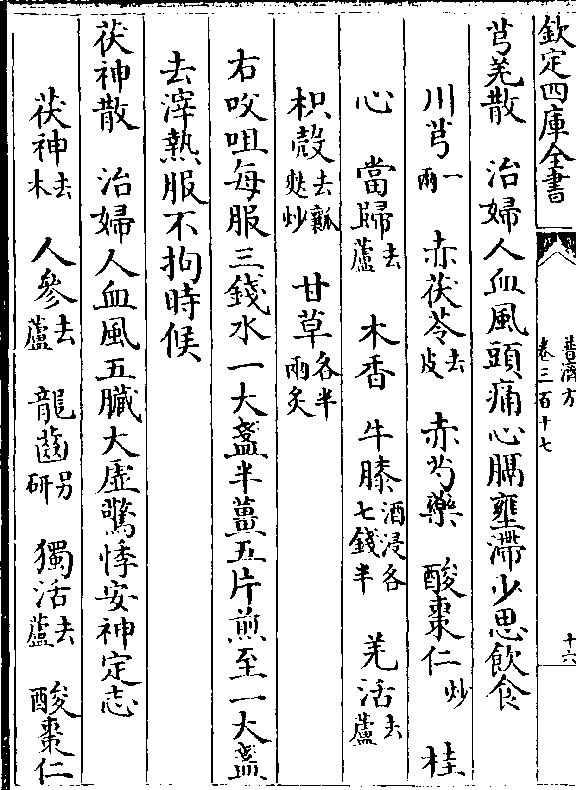 欽定四庫全書
普濟方
卷三百十七
十六
芎羌散　治婦人血風頭痛心膈壅滯少思飲食
川芎一兩　赤茯苓去皮　赤芍藥　酸棗仁炒　桂
心　當歸去蘆　木香　牛膝酒浸各七錢半　羌活去蘆
枳殼去瓤麩炒　甘草各半兩炙
右㕮咀每服三錢水一大盞半薑五片煎至一大盞
去滓熱服不拘時候
茯神散　治婦人血風五臟大虛驚悸安神定志
茯神去木　人參去蘆　龍齒另研　獨活去蘆　酸棗仁